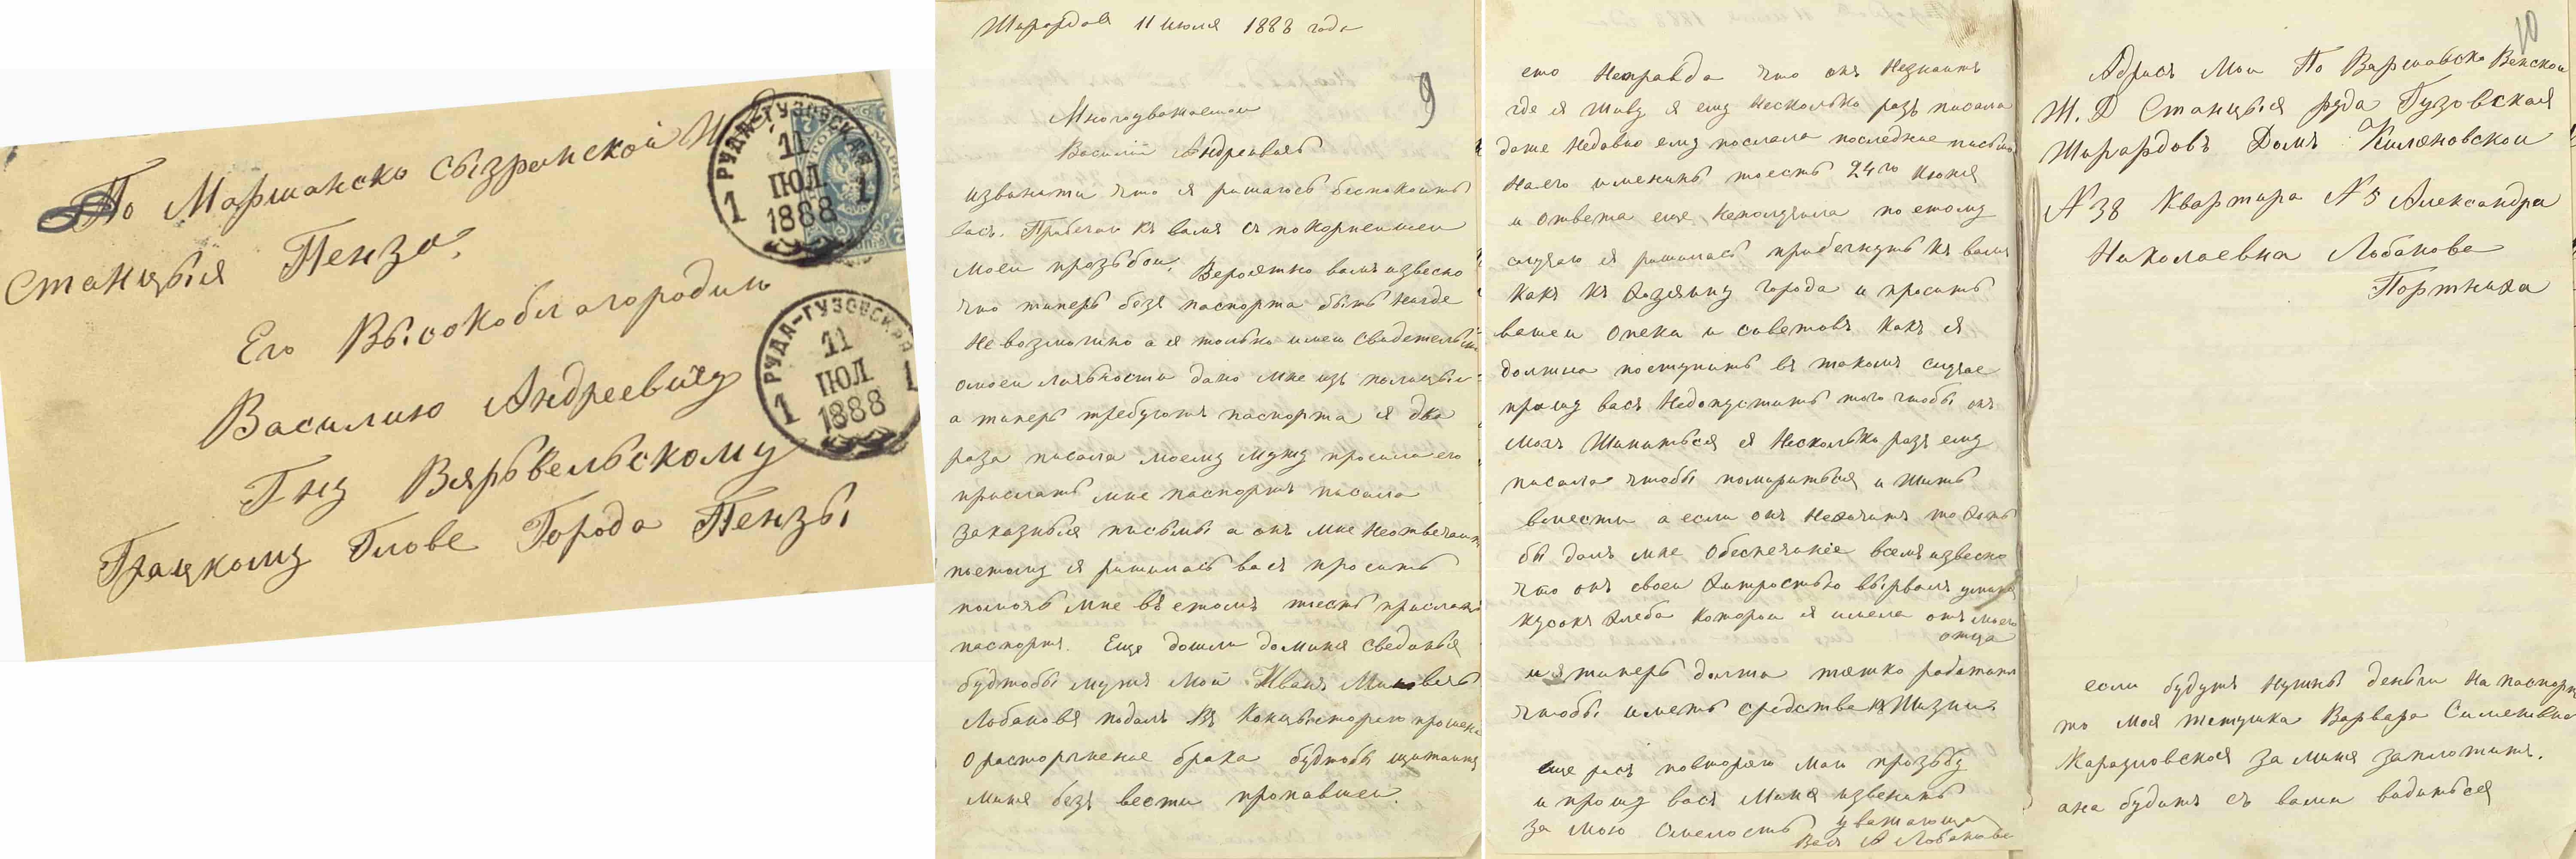 По Моршанско сызранской Ж
Станцыя Пенза.
Его Высокоблагородию
Василию Андреевичу
Гну Вярьвельскому
Грацкому Глове Города Пензы
РУДА-ГУЗОВСКАЯ
11
ІЮЛ
1888
1 1
РУДА-ГУЗОВСКАЯ
11
ІЮЛ
1888
1 1
МАРКА
Жирардов 11 июля 1888 года
9
Многоуважаемои
Василий Андреивичь
извинити что я ришаюсь беспокоить
васъ. Прибегаю къ вамъ с покорнеишеи
моеи прозьбои. Вероятно вамъ извесно
что типерь безъ паспорта быть нигде
не возможно а я только имею свидетельство
о моеи личьности дано мне изъ полицыи
а типерь требуютъ паспорта я два
раза писала моему мужу просила его
прислать мне паспортъ писала
заказныя письмы а онъ мне неотвечаитъ
поетому я ришилась васъ просить
помочь мне въ етомъ тоесть прислать
паспортъ. Еще дошли доминя сведанья
будтобы мужъ мой Иванъ
Лобановъ подалъ въ Концысторию прошение
О расторжение брака будтобы щитаитъ
миня безъ вести пропавшеи.
ето Неправда что онъ Незнаитъ
где я живу я ему несколько разъ писала
даже недавно ему послала последнее письмо
на его именины тоесть 24го Июня
и ответа еще неполучила по етому
случаю я ришилась прибегнуть къ вамъ
какъ къ Хозяину города и просить
вашеи опеки и советовъ какъ я
должна поступить въ такомъ случае
прошу васъ Недопустить того чтобы онъ
могъ жиниться я несколько разъ ему
писала чтобы помириться и жить
вмести а если онъ нехочитъ то хоть
бы далъ мне обеспечание всемъ извесно
что онъ своеи хитростью вырвалъ уминя
кусокъ хлеба которои я имела отъ моего
отца
и я типерь должна тяжко работать
чтобы иметь средства къ жизни.
еще расъ повторяю мою прозьбу
и прошу васъ миня извенить
за мою смелость уважающая
Васъ А Лобанова
10
Адресъ Мои По Варшавско Венскои
Ж. Д Станцыя руда Гузовская
Жирардовъ Домъ Киляновскои
№ 38 Квартира № 5 Александра
Николаевна Лобанове
Портниха
если будутъ нужны деньги на паспортъ
то моя тетушка Варвара Сименовна
Каразиовская за миня заплотитъ.
ана будитъ съ вами видиться